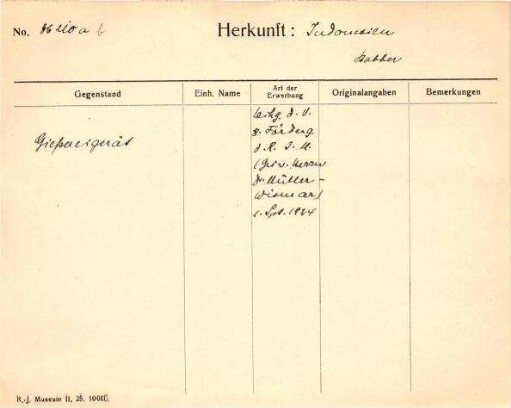 No. Ab 210 a b
Herkunft: Indonesien
Babber
Gegenstand
Einh. Name
Art der Erwerbung
Originalangaben
Bemerkungen
Gießereigerät
Leihg. d. V.
z. Förderg
d. R. J. M.
(Gew. Herrn
Dr. Müller-
Wismar)
1. Spt. 1924
R.-J. Museum II, 28. 10000.